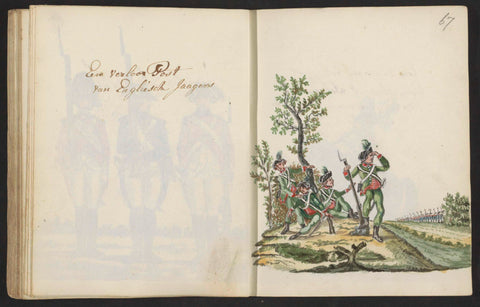 67
Een verloor Post
van Englisch Jaagers